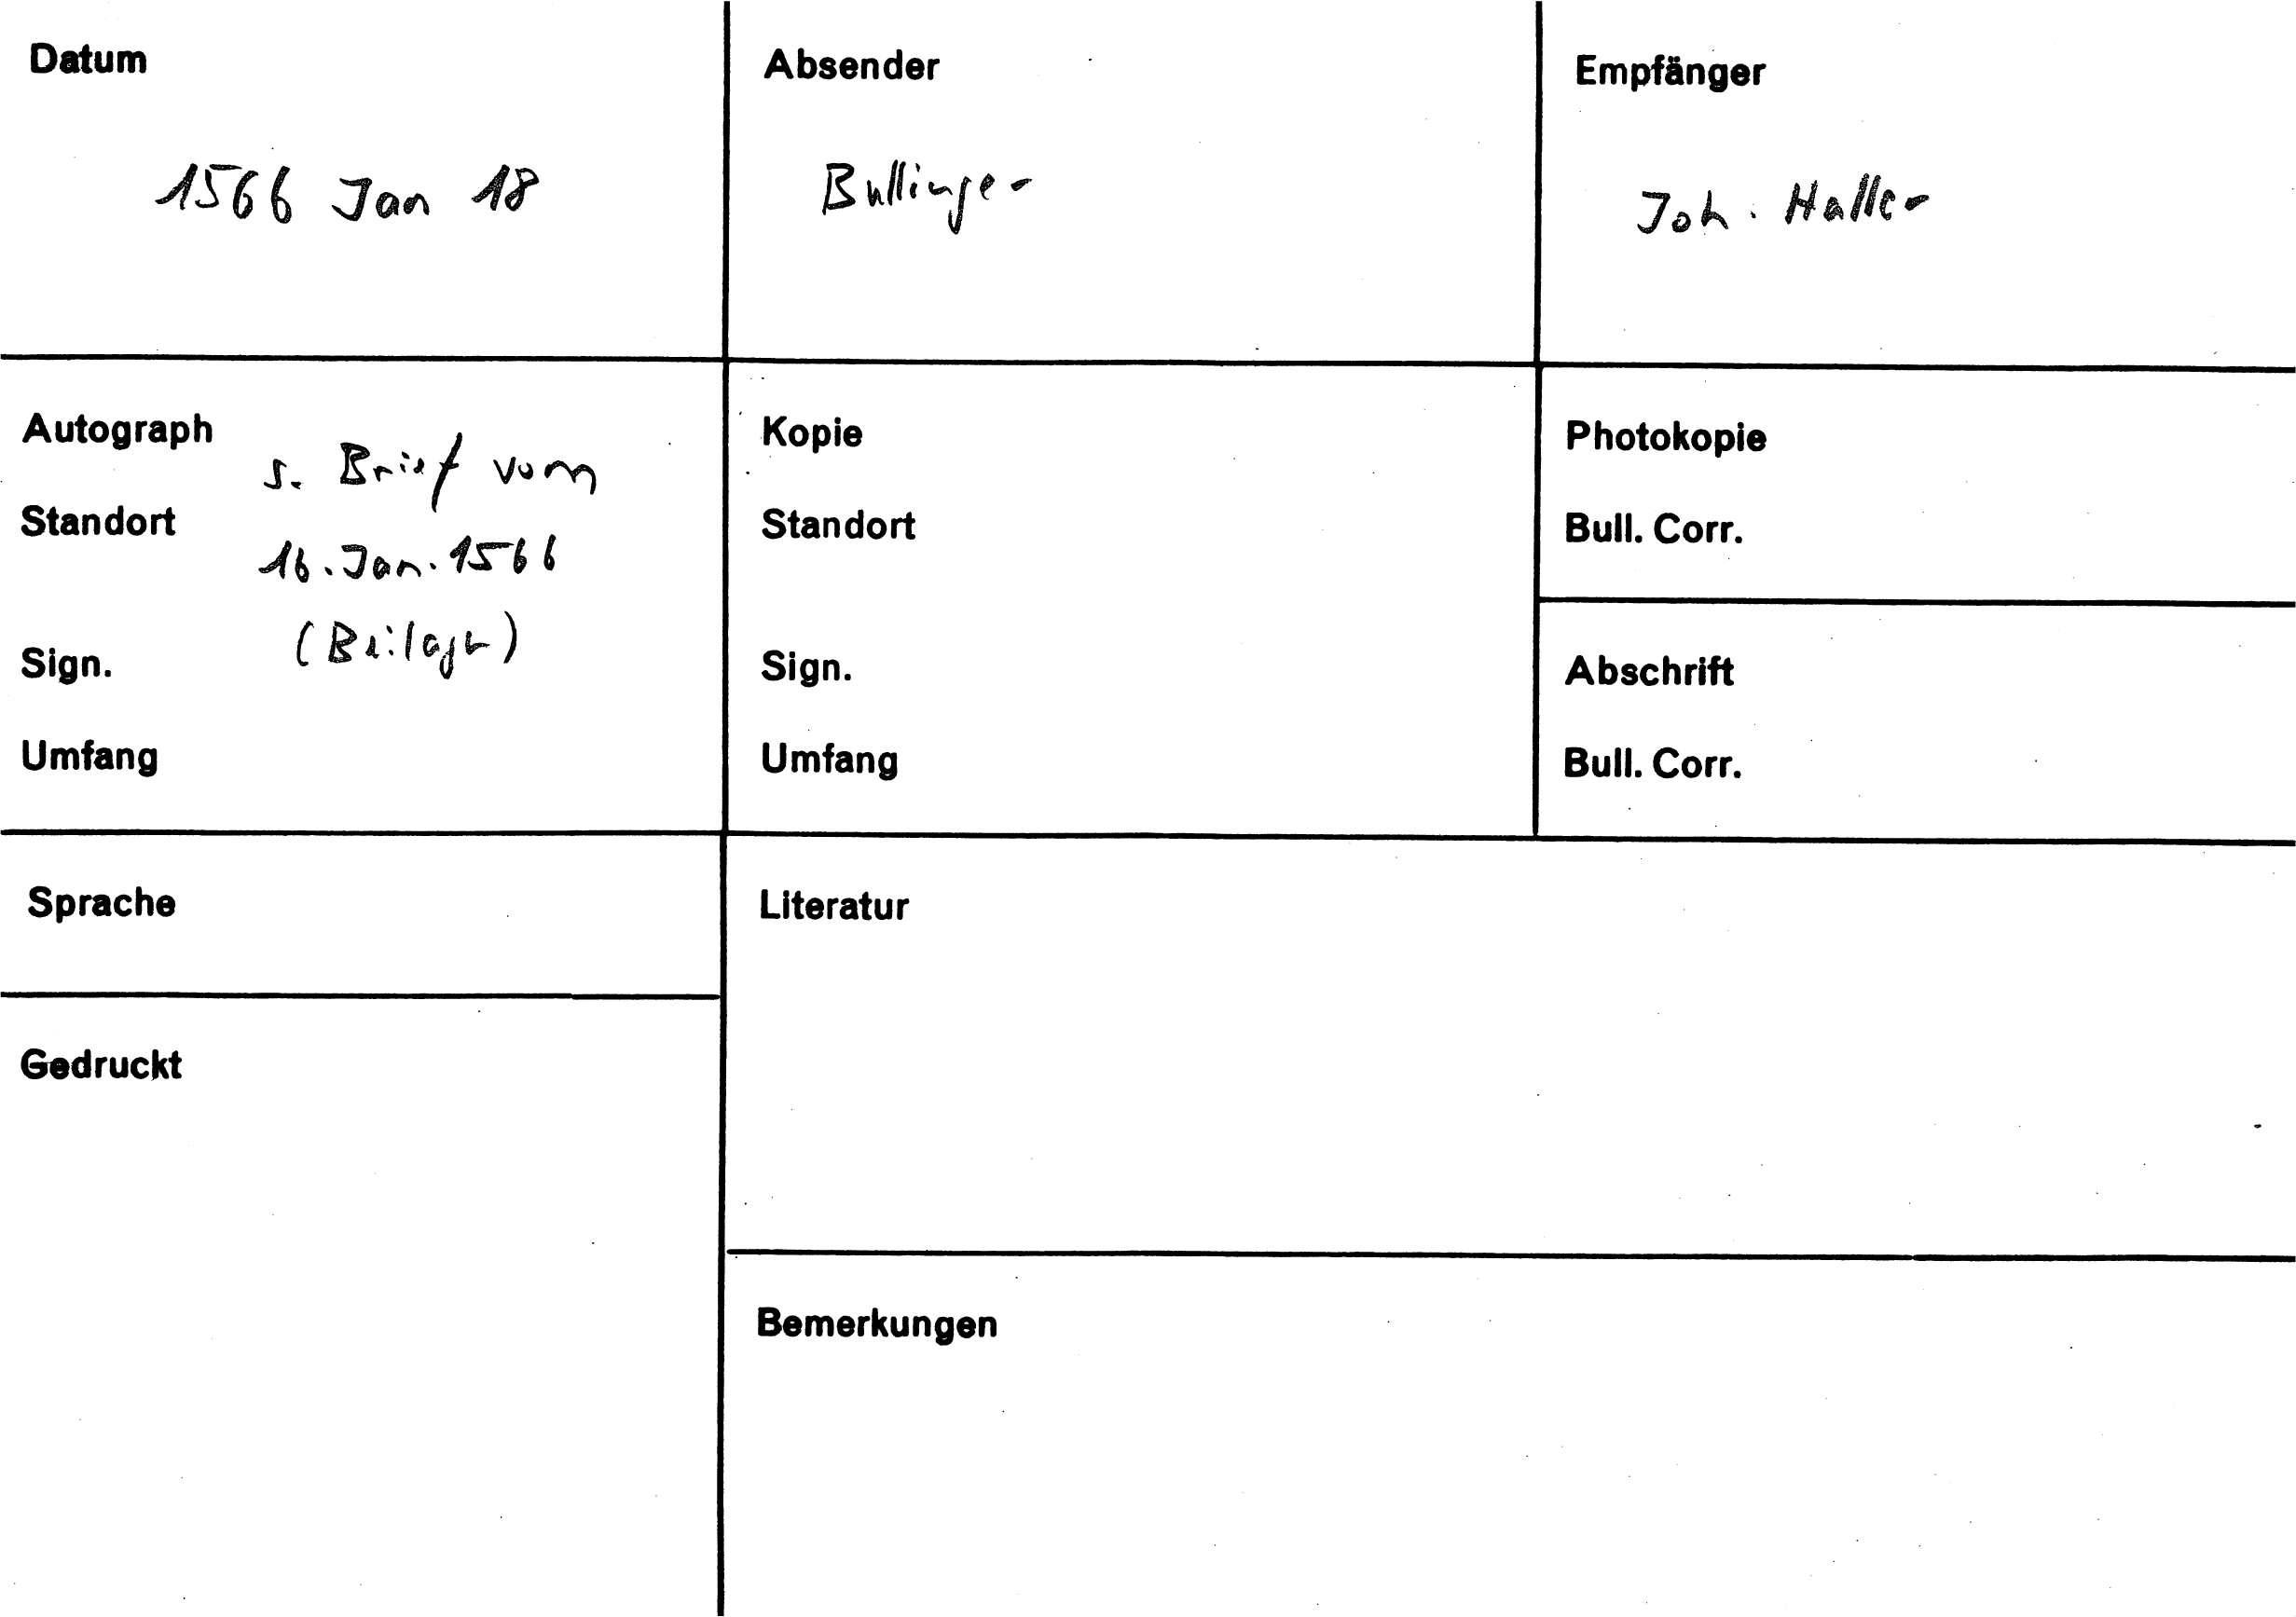 Datum
1566 Jan 18
Absender
Bullinger
Empfänger
Joh. Haller
Autograph
s. Brief vom
Standort
16. Jan. 1566
(Beilage)
Sign.
Umfang
Kopie
Standort
Sign.
Umfang
Photokopie
Bull. Corr.
Abschrift
Bull. Corr.
Sprache
Literatur
Gedruckt
Bemerkungen